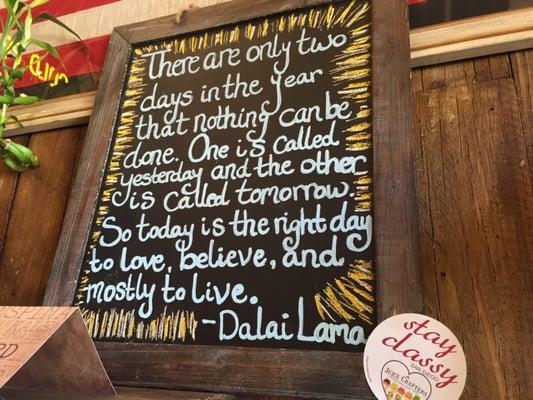 There are only two
days in the year
that nothing can be
done. One is called
yesterday and the other
is called tomorrow.
So today is the right day
to love, believe, and
mostly to live.
-Dalai Lama
stay
classy
SAN DIEGO
JUICE CRAFTERS